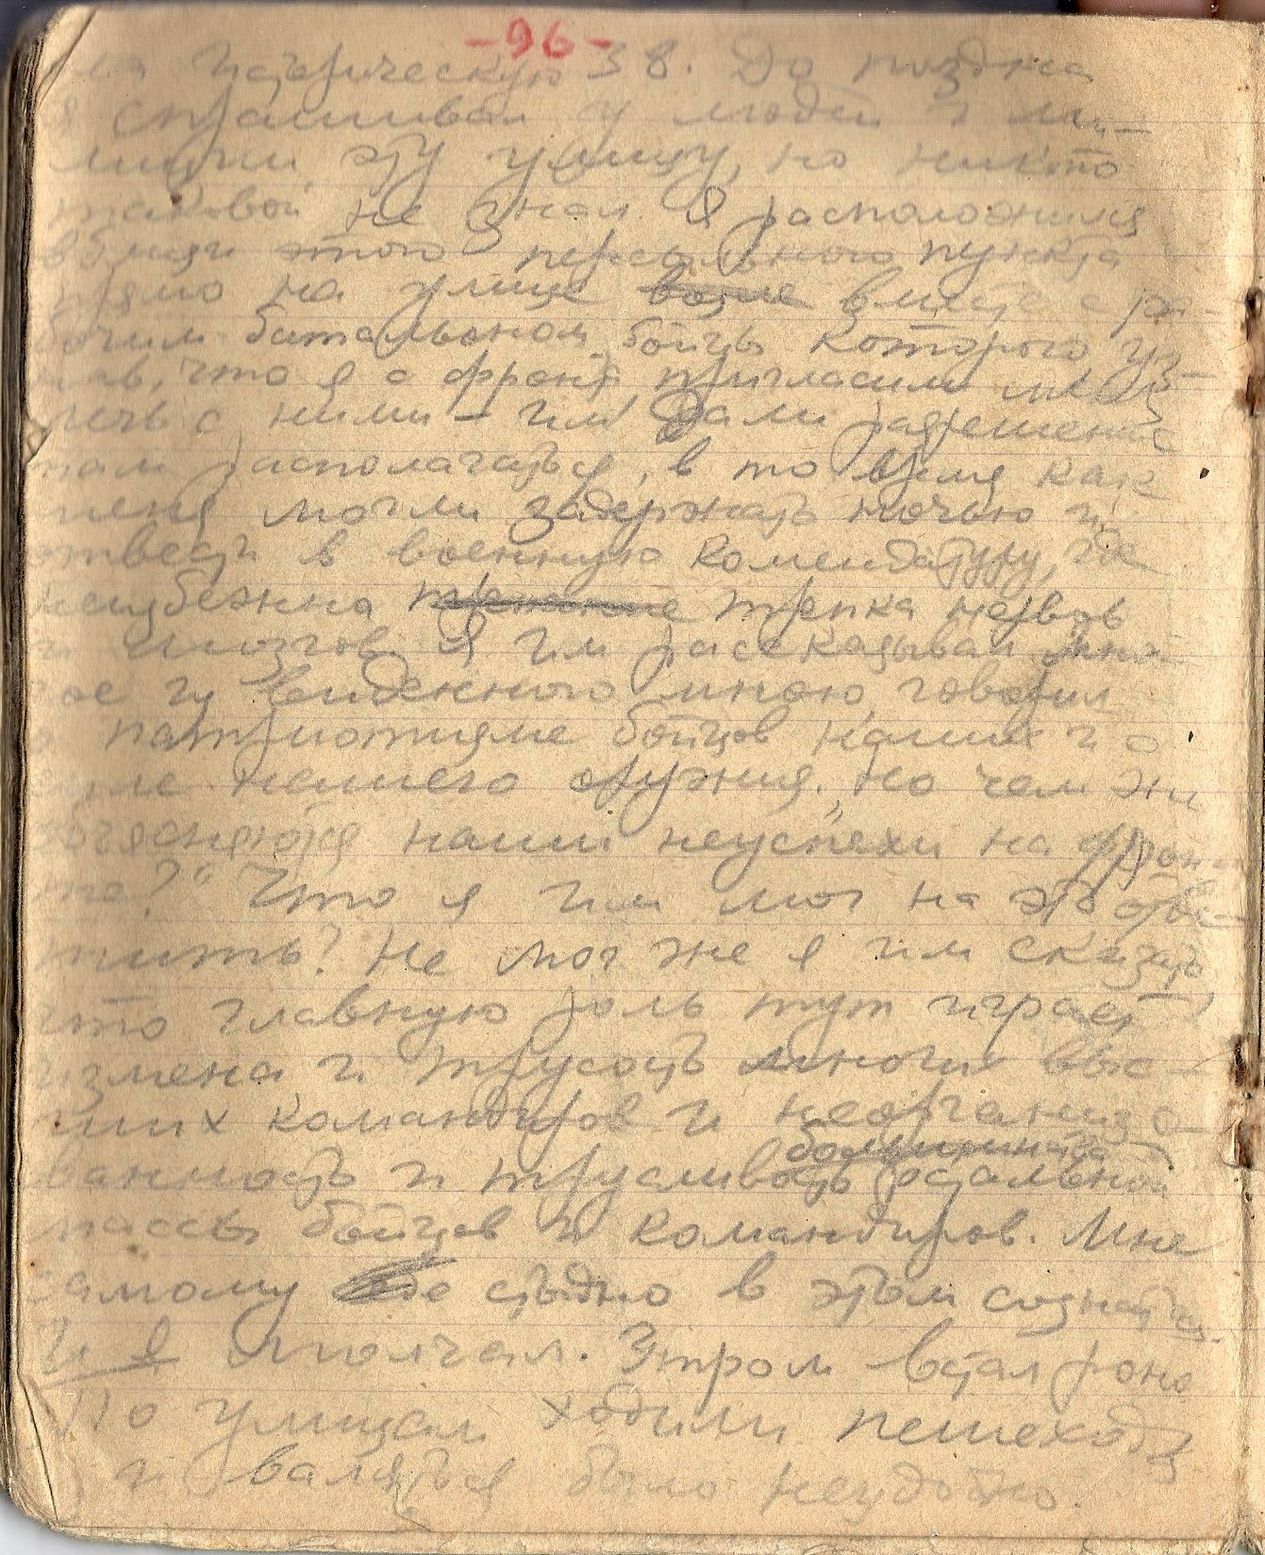 -96-
на Цаферическую 38. До поздна
я спрашивал у людей и ми-
лиции эту улицу, но никто
таковой не знал. Я расположился
вблизи этого пункта
прямо на улице возле вместе с ра-
бочим батальоном, бойцы которого уз-
нав, что я с фронта, пригласили меня
лечь с ними – им дали разрешение
там располагаться, в то время как
меня могли задержать ночью и
отвести в военную комендатуру, где
неизбежна трепка нервов
и мозгов. Я им рассказывал мно-
гое из виденного мною, говорил
о патриотизме бойцов наших и о
силе нашего оружия. „Но чем же
объясняются наши неуспехи на фрон-
те?“ Что я им мог на это отве-
тить? Не мог же я им сказать
что главную роль тут играет
измена и трусость многих выс-
ших командиров и неорганизо-
большинства
ванность и трусливость остальной
массы бойцов и командиров. Мне
самому стыдно в этом сознаться.
И я молчал. Утром встал рано
По улицам ходили пешеходы
и валяться было неудобно.